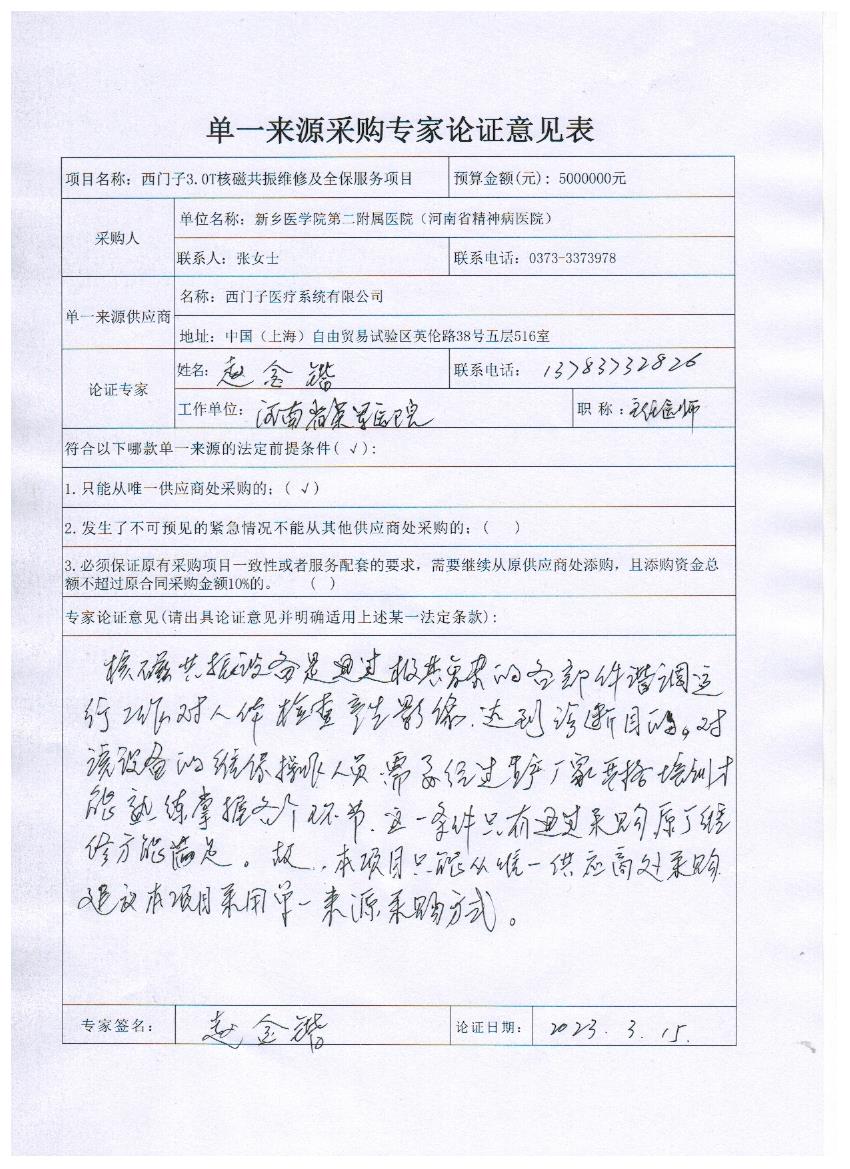 单一来源采购专家论证意见表
项目名称：西门子3.0T核磁共振维修及全保服务项目 预算金额(元)：5000000元
采购人
单位名称：新乡医学院第二附属医院（河南省精神病医院）
联系人：张女士 联系电话：0373-3373978
单一来源供应商
名称：西门子医疗系统有限公司
地址：中国（上海）自由贸易试验区英伦路38号五层516室
论证专家
姓名：赵金锴 联系电话：13783732826
工作单位：河南省荣军医院 职称：主任医师
符合以下哪款单一来源的法定前提条件(√)：
1.只能从唯一供应商处采购的；(√)
2.发生了不可预见的紧急情况不能从其他供应商处采购的；( )
3.必须保证原有采购项目一致性或者服务配套的要求，需要继续从原供应商处添购，且添购资金总
额不超过原合同采购金额10%的。 ( )
专家论证意见(请出具论证意见并明确适用上述某一法定条款)：
核磁共振设备是通过极其复杂的各部件谐调运
行工作,对人体检查产生影像.达到诊断目的。对
该设备的维保操作人员需要经过生产厂家严格培训才
能熟练掌握各个环节.这一条件只有通过采购原厂维
修方能满足。故..本项目只能从唯一供应商处采购.
建议本项目采用单一来源采购方式。
专家签名：赵金锴 论证日期：2023.3.15.